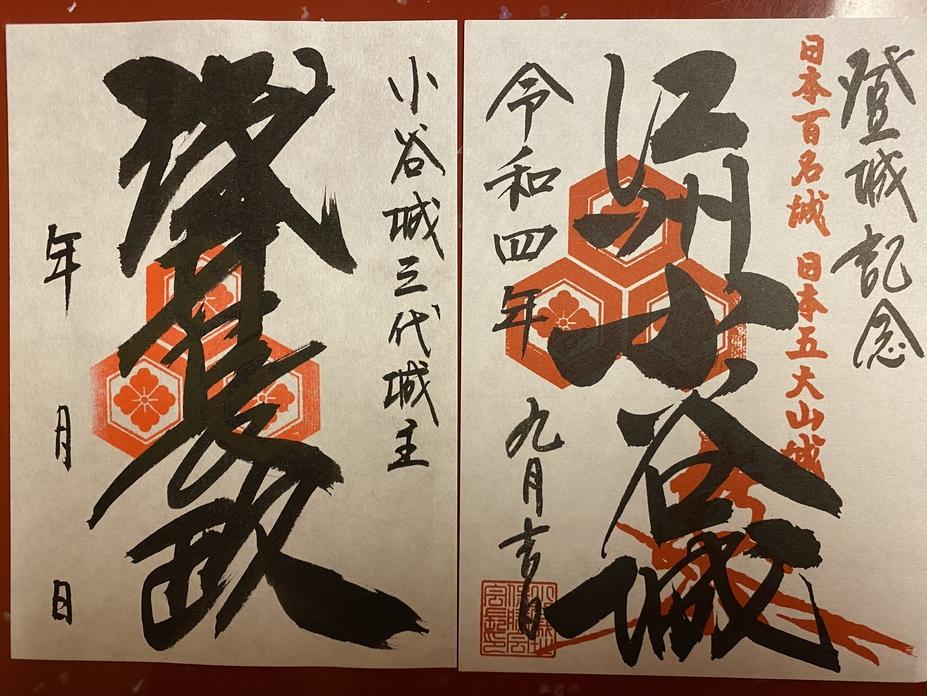 登城記念
日本百名城 日本五大山城
江州小谷城
令和四年 九月吉日
小谷城三代城主
浅井長政
年 月 日